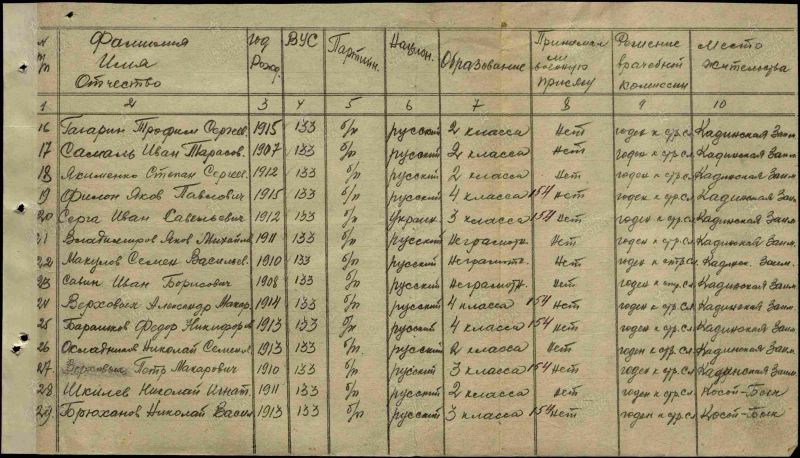 N пп Фамилия Имя Отчество Год Рожд. ВУС Партийн. Национ. Образование Принимал ли военную присягу Решение врачебной комиссии Место жительства
1 2 3 4 5 6 7 8 9 10
16 Гагарин Трофим Сергеев. 1915 133 б/п русский 2 класса нет годен к стр.сл Кадинская Заим.
17 Самаль Иван Тарасов. 1907 133 б/п русский 2 класса нет годен к стр.сл Кадинская Заим.
18 Якименко Степан Сергеев. 1912 133 б/п русский 2 класса нет годен к стр.сл Кадинская Заим.
19 Филон Яков Павлович 1915 133 б/п русский 4 класса 154 нет годен к стр.сл Кадинская Заим.
20 Серга Иван Савельевич 1912 133 б/п украин. 3 класса 154 нет годен к стр.сл Кадинская Заим.
21 Владимиров Яков Михайл 1911 133 б/п русский Неграмотн. нет годен к стр.сл Кадинская Заим.
22 Макулов Семен Васильев. 1910 133 б/п русский Неграмотн. нет годен к стр.сл Кадинск. Заим.
23 Савин Иван Борисович 1908 133 б/п русский Неграмотн. нет годен к стр.сл Кадинская Заим.
24 Верховых Александр Макар. 1914 133 б/п русский 4 класса 154 нет годен к стр.сл Кадинская Заим.
25 Баранков Федор Никифоров 1913 133 б/п русский 4 класса 154 нет годен к стр.сл Кадинская Заим.
26 Охладников Николай Семен. 1913 133 б/п. русский 2 класса нет годен к стр.сл Кадинская Заим.
27. Верховых Петр Макарович 1910 133 б/п русский 3 класса 154 нет годен к стр.сл Кадинская Заим.
28 Шкилев Николай Игнат. 1911 133 б/п русский 2 класса нет годен к стр.сл Косой-Бык
29. Брюханов Николай Васил 1913 133 б/п русский 3 класса 154 нет годен к стр.сл Косой-Бык